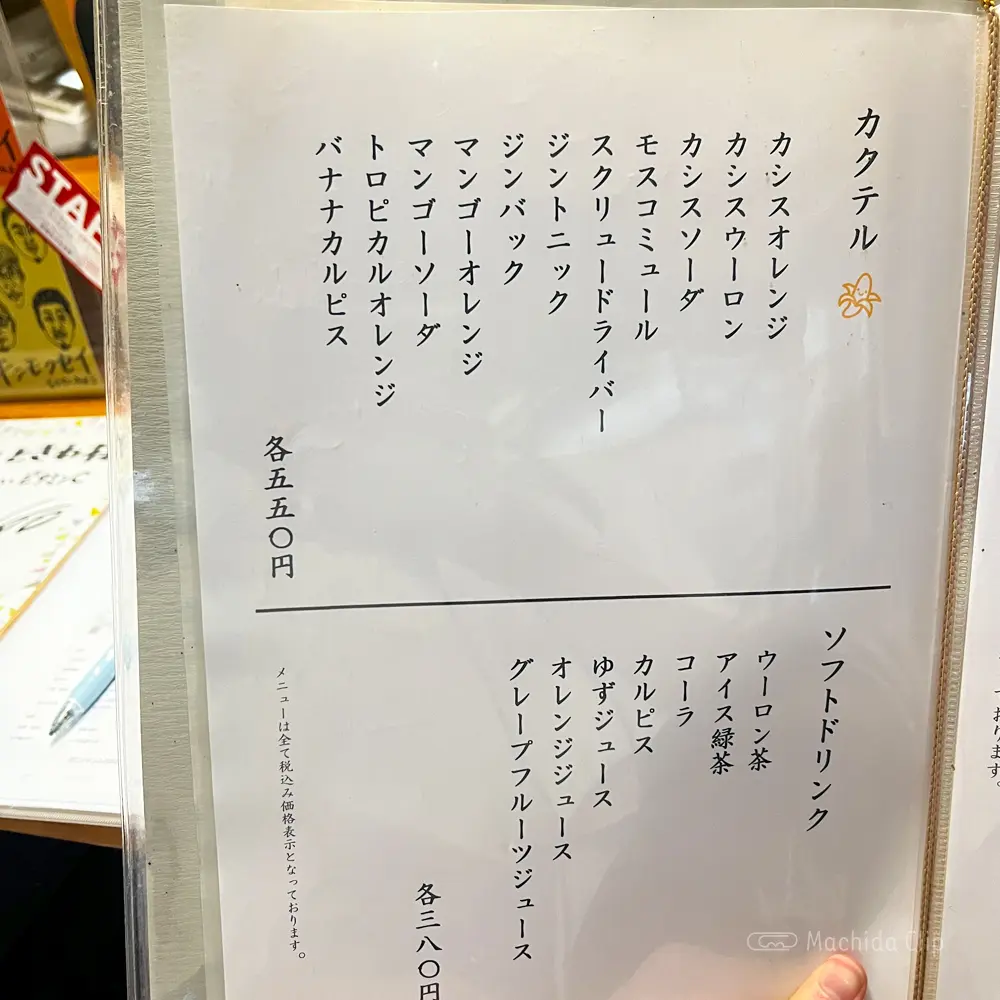 カクテル
カシスオレンジ
カシスウーロン
カシスソーダ
モスコミュール
スクリュードライバー
ジントニック
ジンバック
マンゴーオレンジ
マンゴーソーダ
トロピカルオレンジ
バナナカルピス
各五五〇円
ソフトドリンク
ウーロン茶
アイス緑茶
コーラ
カルピス
ゆずジュース
オレンジジュース
グレープフルーツジュース
各三八〇円
メニューは全て税込み価格表示となっております。
おります。
STA
キンモクセイ
Machida Clip